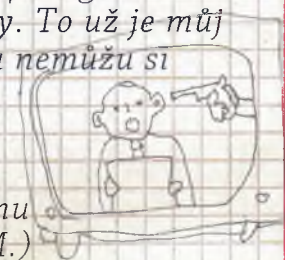 y. To už je můj
nemůžu si
nu
M.)